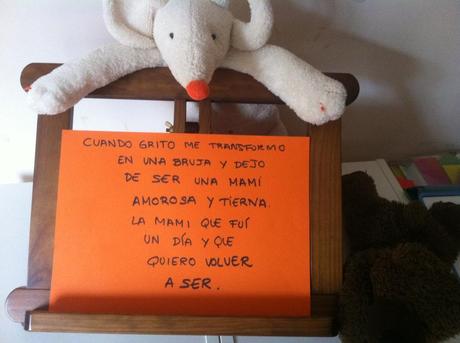 CUANDO GRITO ME TRANSFORMO
EN UNA BRUJA Y DEJO
DE SER UNA MAMÍ
AMOROSA Y TIERNA.
LA MAMI QUE FUÍ
UN DÍA Y QUE
QUIERO VOLVER
A SER.